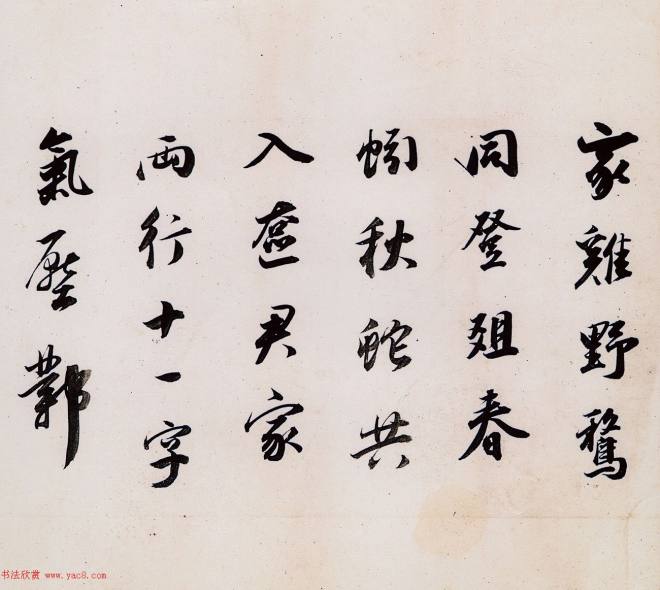 家雞野鶩
同登爼春
蚓秋蛇共
入奩君家
兩行十一字
氣壓鄴
书法欣赏 www.yac8.com